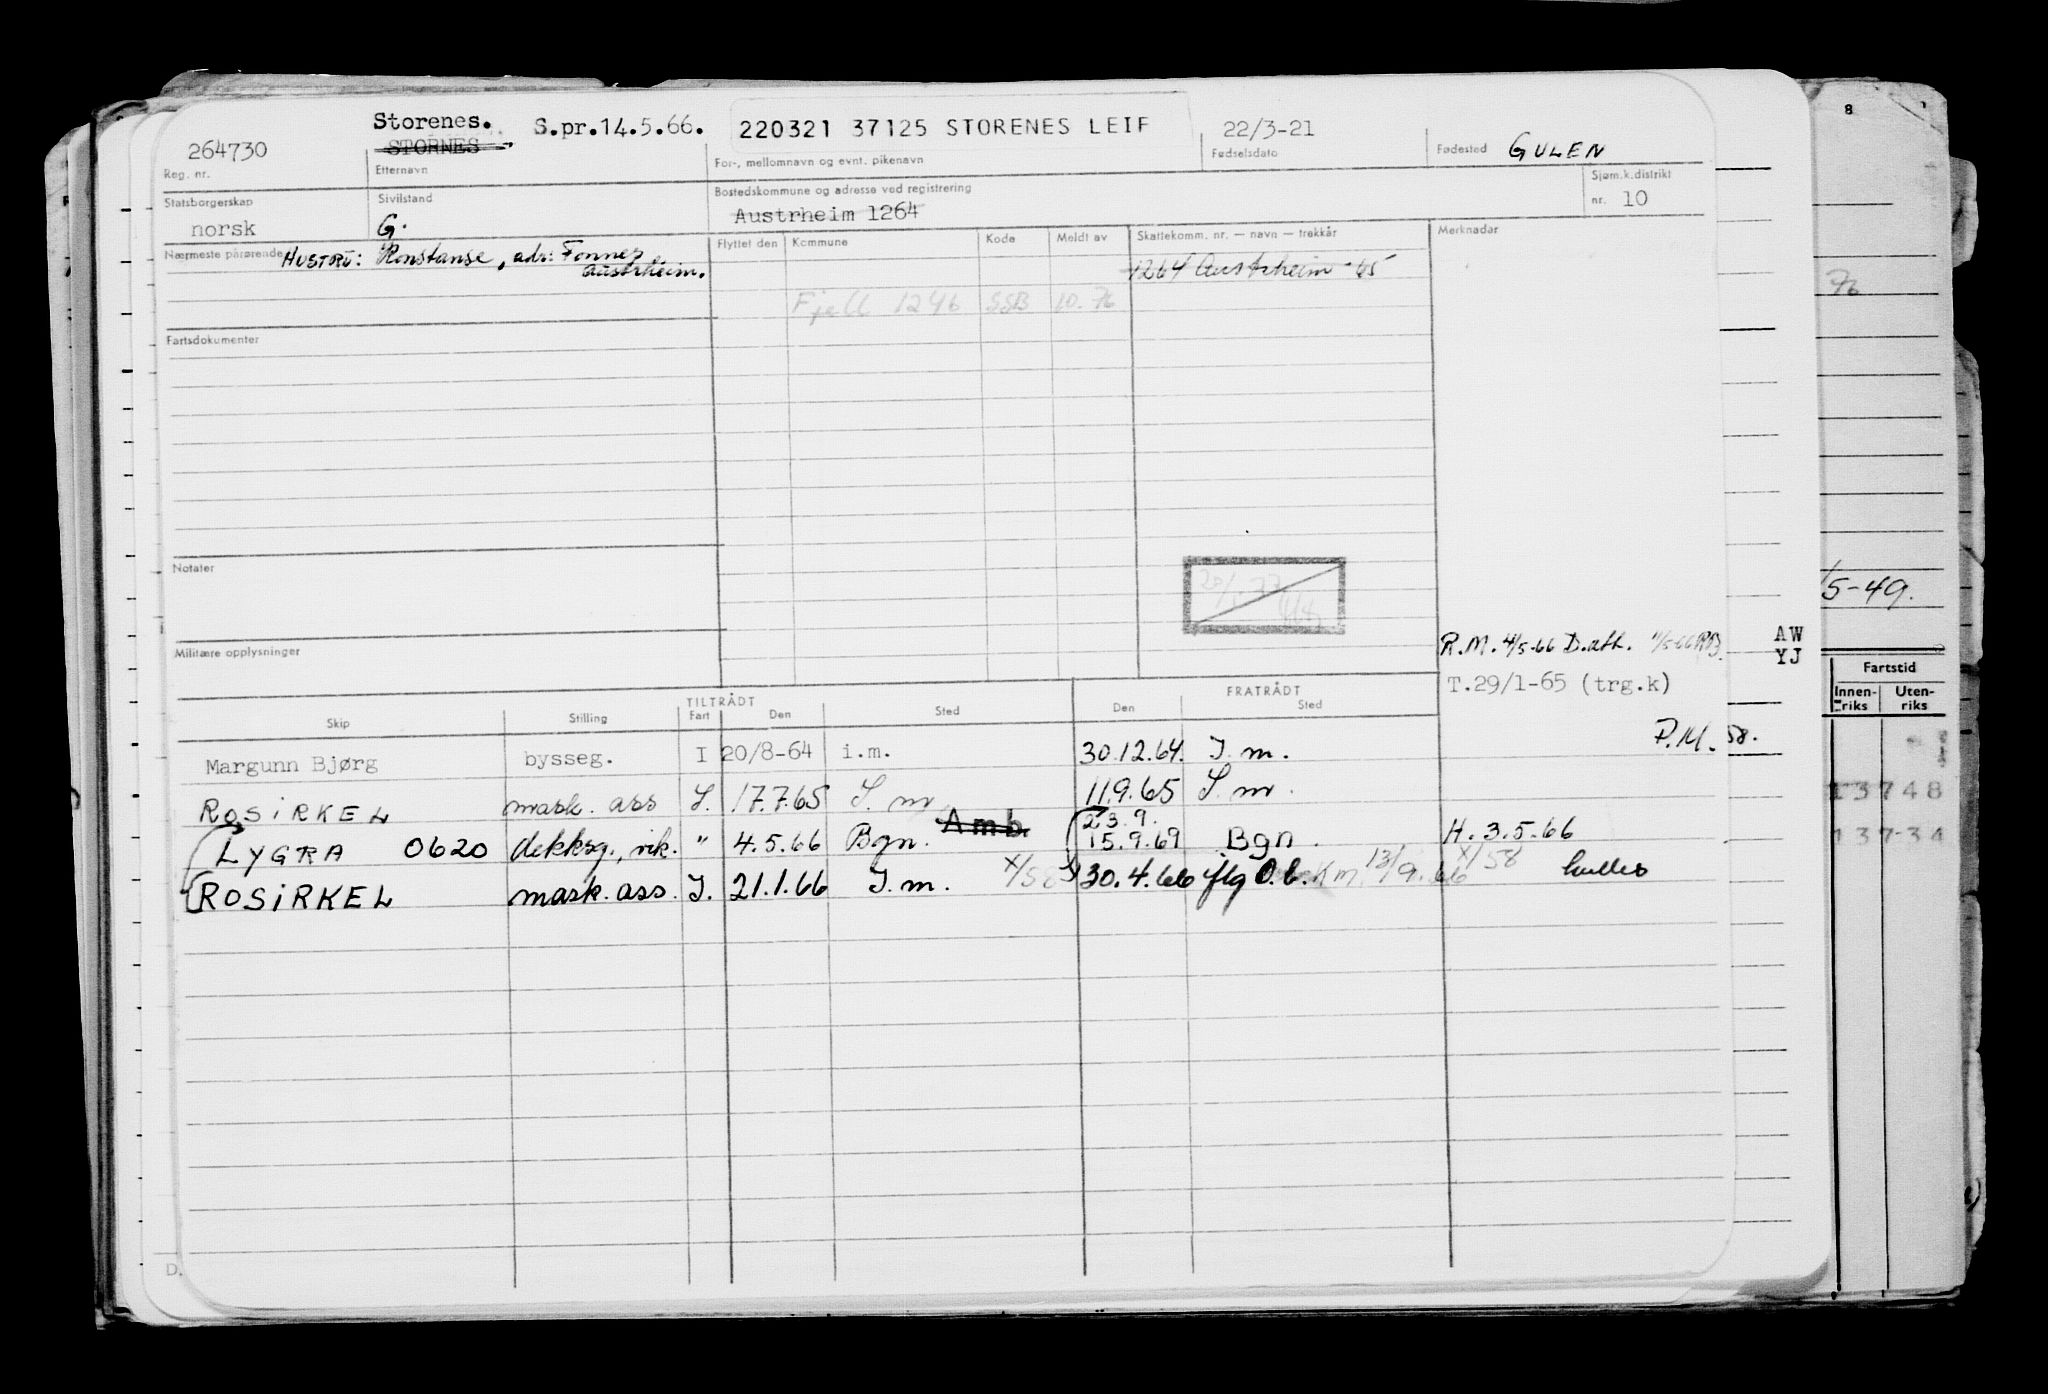 Storenes. S.pr.14.5.66. 220321 37125 STORENES LEIF 22/3-21
264730 STORNES Fødselsdato Fødested GULEN
Reg. nr. Etternavn For-, mellomnavn og evnt. pikenavn
Statsborgerskap Sivilstand Bostedskommune og adresse ved registrering Sjøm.k.distrikt
norsk G. Austrheim 1264 nr. 10
Nærmeste pårørende HUSTRU: Konstanse, adr: Fonnes Flyttet den Kommune Kode Meldt av Skattekomm. nr. — navn — trekkår Merknader
Austrheim. 1264 Austrheim -65
Fjell 1246 SSB 10.76
Fartsdokumenter
Notater
Militære opplysninger
R.M. 4/5-66 D.ath. 11/5-66 RB.
T.29/1-65 (trg.k)
TILTRÅDT FRATRÅDT
Skip Stilling Fart Den Sted Den Sted
P.M. 58.
Margunn Bjørg bysseg. I 20/8-64 i.m. 30.12.64. I.m.
ROSIRKEL mask. ass I. 17.7.65 I.m. 11.9.65 I.m.
23.9.
LYGRA 0620 dekksg., vik. " 4.5.66 Bgn. Amb. 15.9.69 Bgn. H. 3.5.66
ROSIRKEL mask. ass. I. 21.1.66 I.m. X/58 30.4.66 iflg O.b. Km 13/9.66 X/58
76
5-49.
AW
YJ
Fartstid
Innen-riks Uten-riks
13748
13734
8
D.